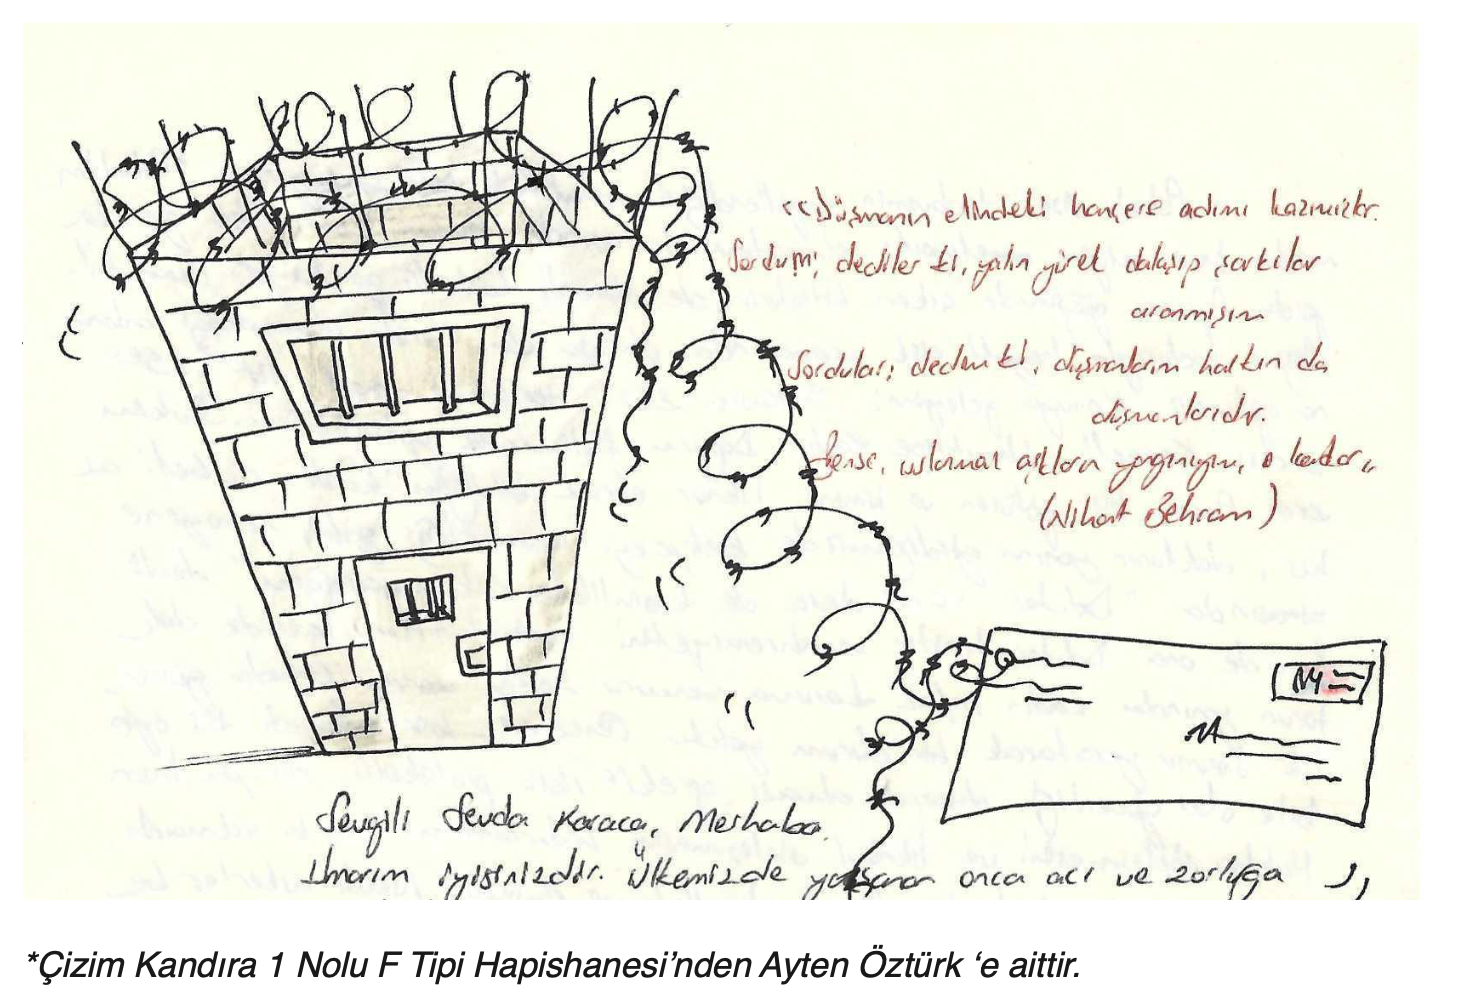 "Düşmanın elindeki hançere adımı kazımıştır.
Sordum; dediler ki, yalın yürek dalaşıp şarkılar
aranmışım
Sordular; dedim ki, düşmanlarım halkın da
düşmanlarıdır.
Bense, uslanmaz aşkların yangınıyım, o kadar"
(Nihat Behram)
Sevgili Sevda Karaca, Merhaba.
Umarım iyisinizdir. Ülkemizde yaşanan onca acı ve zorluğa
*Çizim Kandıra 1 Nolu F Tipi Hapishanesi’nden Ayten Öztürk ‘e aittir.